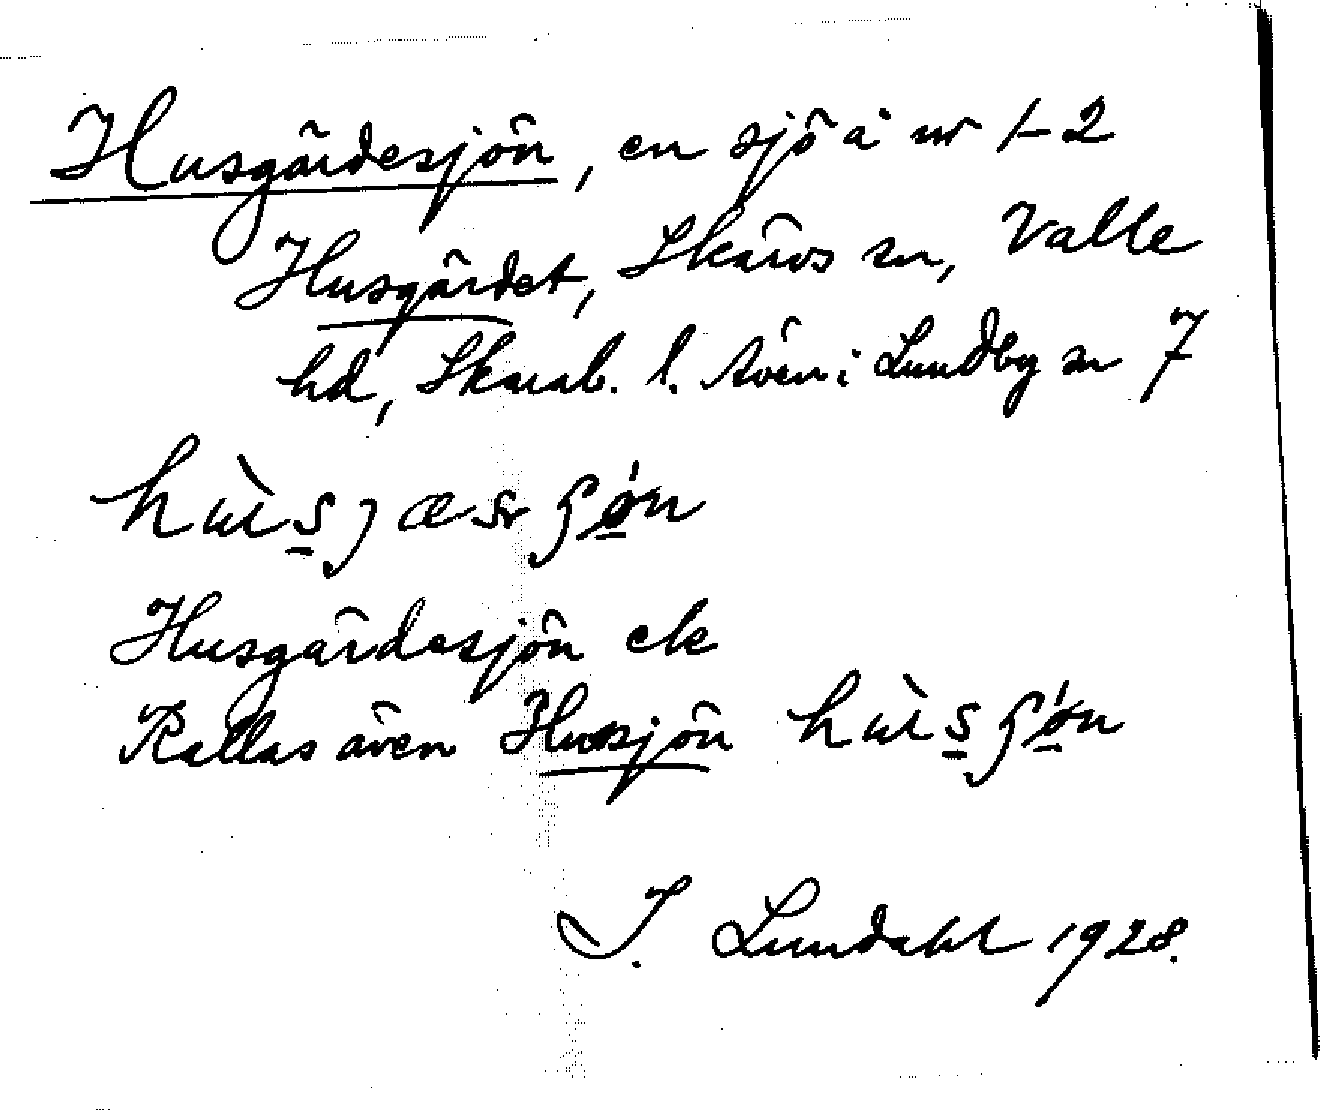 Husgärdesjön, en sjö å nr 1-2
Husgärdet, Skärvs sn, Valle
hd, Skarab. l. Även i Lundby sn 7
hùsjæsʂɷ́n
Husgärdesjön ek
Kallas även Hussjön hùsʂɷ́n
I. Lundahl 1928.